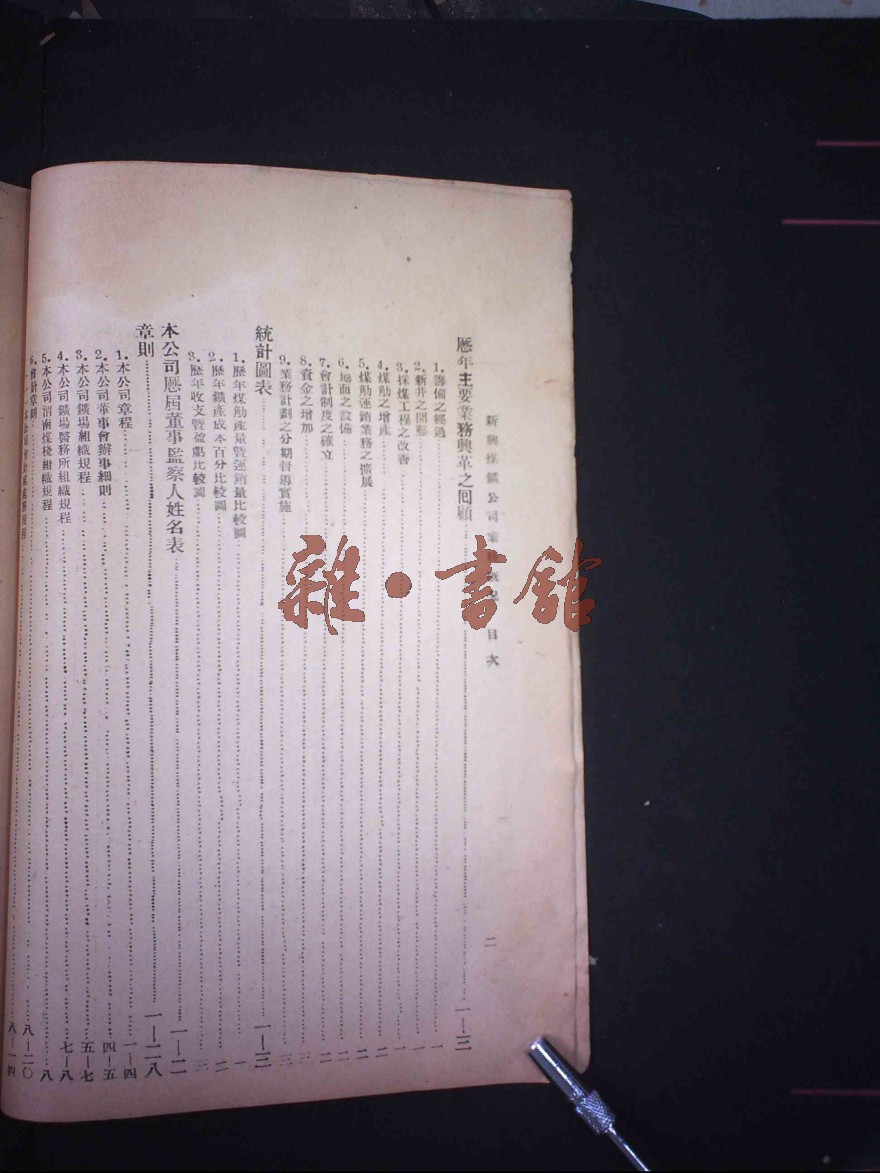 新興煤鑛公司業 目次 二
歷年主要業務興革之回顧……一—三
1.籌備之經過……一
2.新井之開鑿……一
3.採煤工程之改善……一
4.煤觔之增產……二
5.煤觔運銷業務之擴展……二
6.地面之設備……二
7.會計制度之確立……二
8.資金之增加……三
9.業務計劃之分期督導實施……三
統計圖表……一—三
1.歷年煤觔產量暨運銷量比較圖……一
2.歷年鑛產成本百分比較圖……二
3.歷年收支暨盈虧比較圖……三
本公司歷屆董事監察人姓名表……一—二
章則……一—二八
1.本公司章程……一—四
2.本公司董事會辦事細則……四—五
3.本公司鑛場組織規程……五—七
4.本公司鑛場醫務所組織規程……七—八
5.本公司渭南煤棧組織規程……八
6.會計章則……八—二〇
八—一四
雜·書館